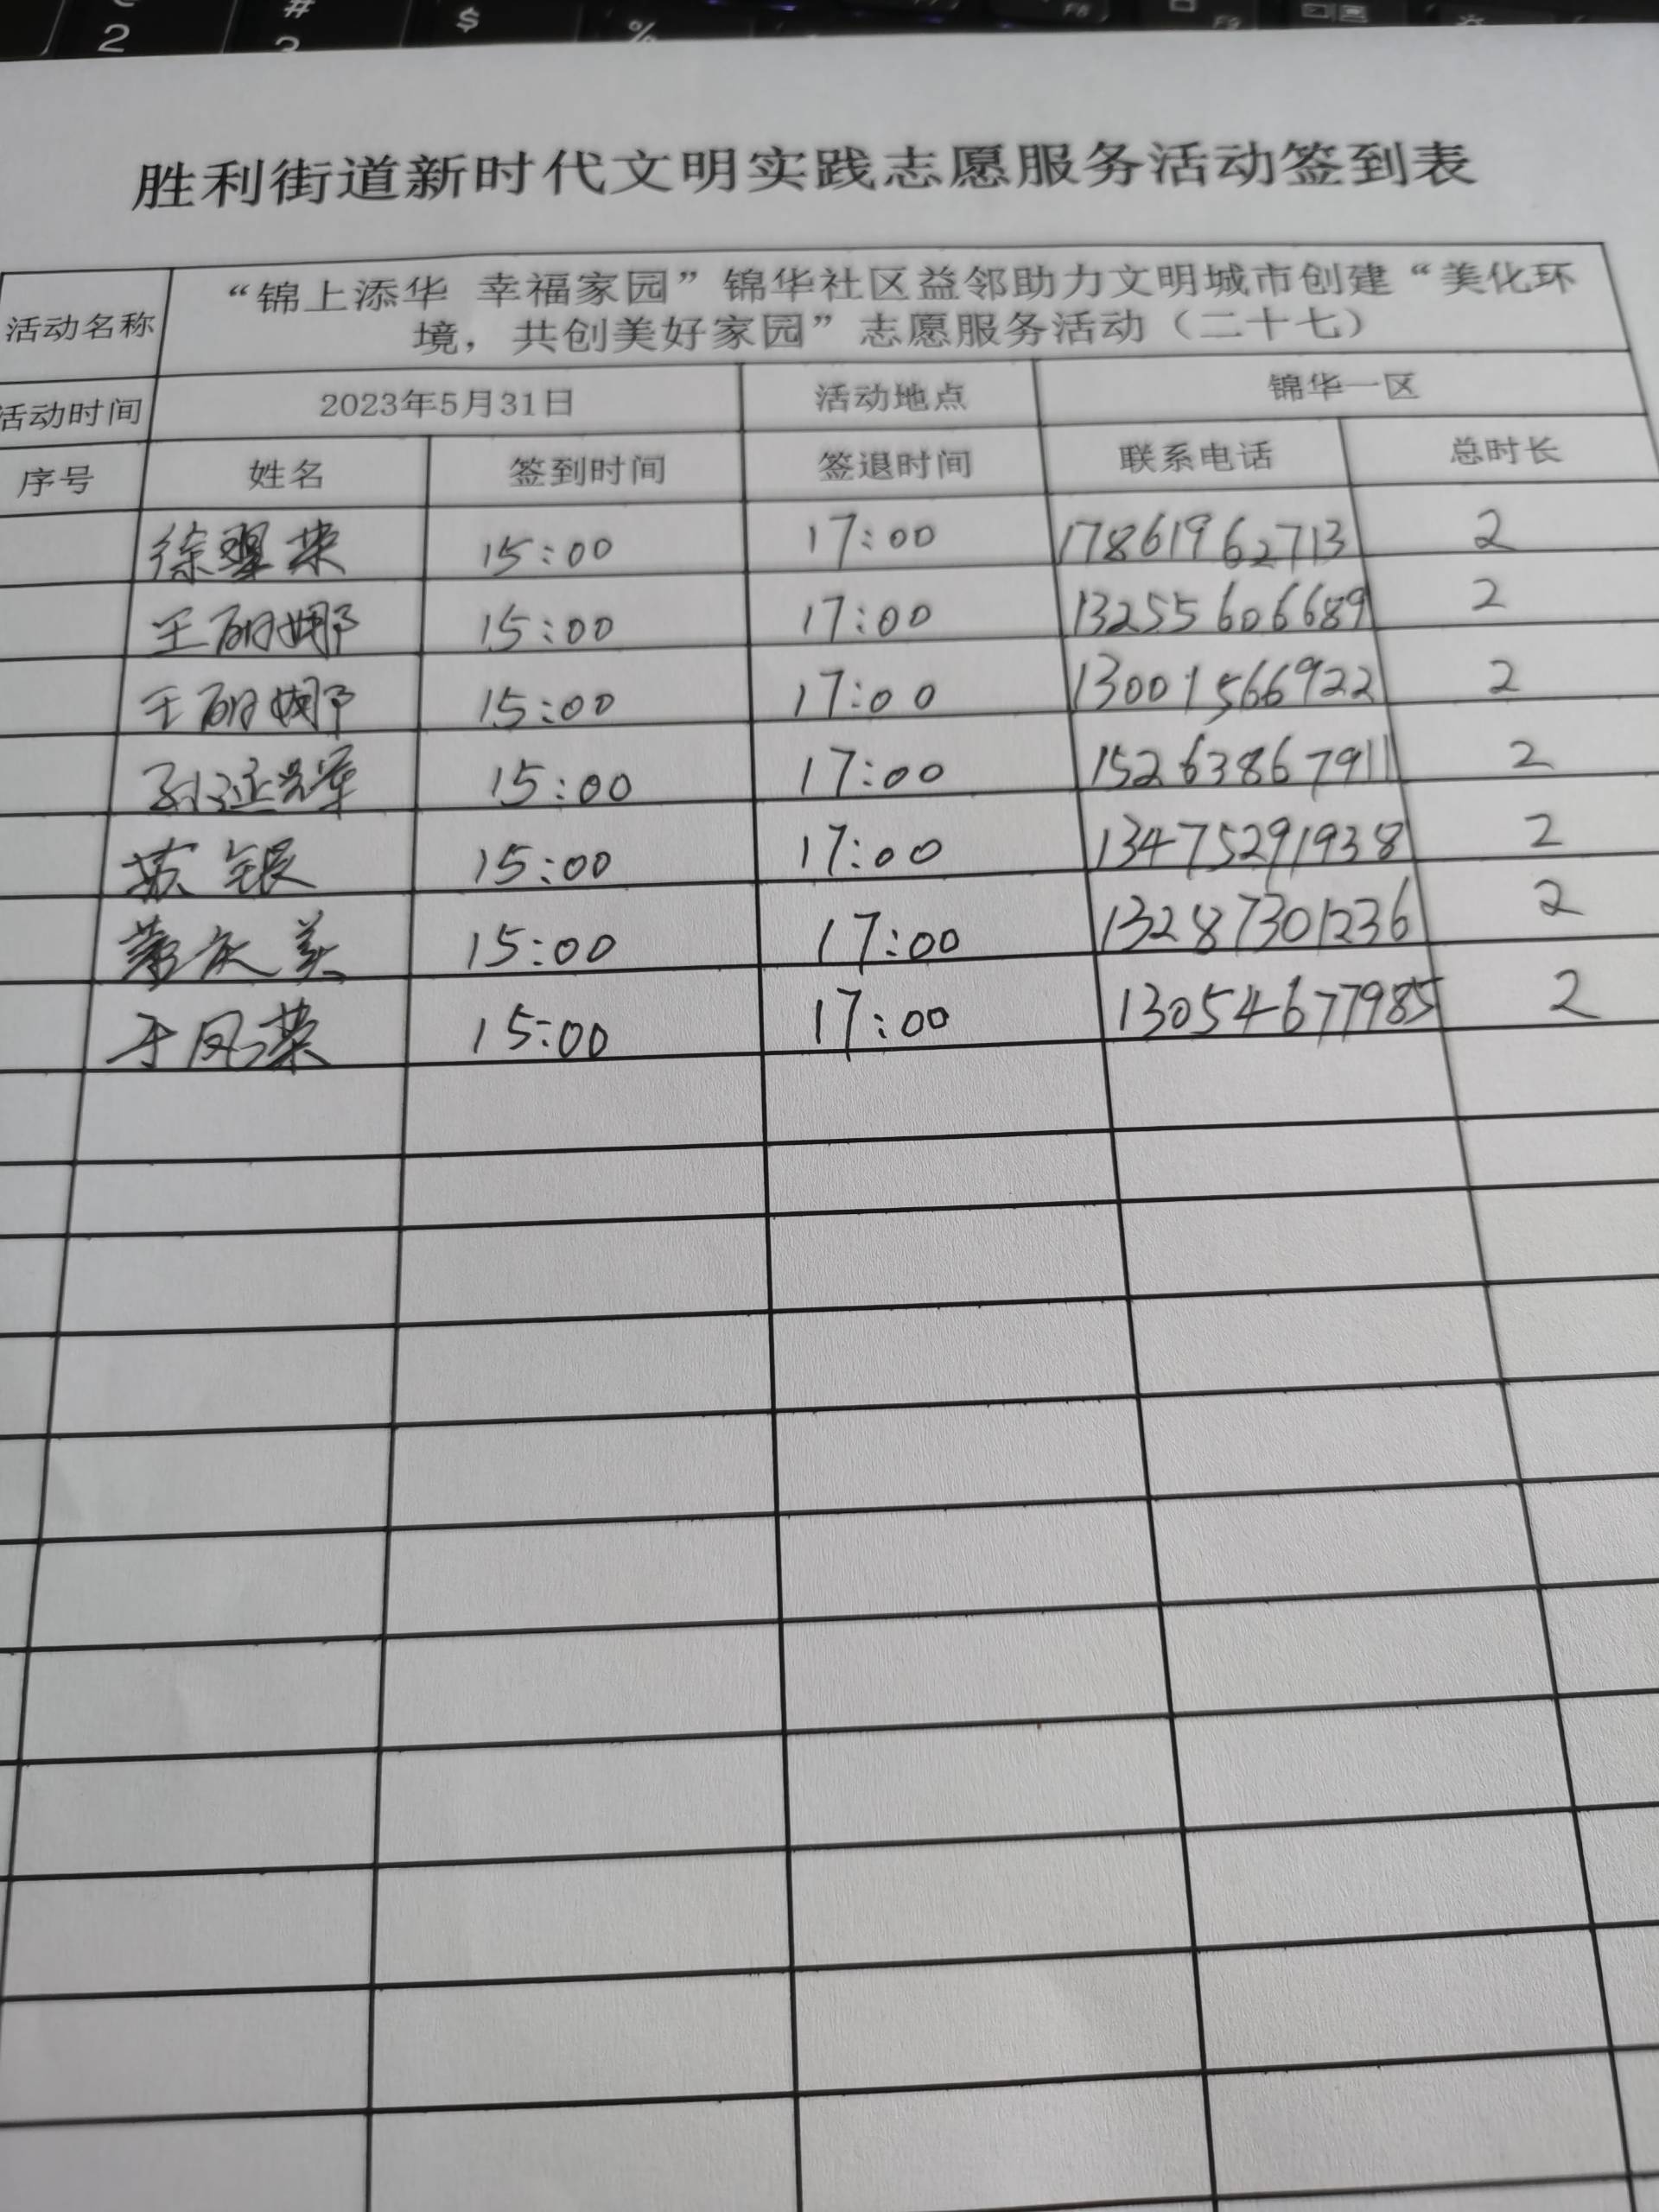 胜利街道新时代文明实践志愿服务活动签到表
活动名称 “锦上添华 幸福家园”锦华社区益邻助力文明城市创建“美化环
境，共创美好家园”志愿服务活动（二十七）
活动时间 2023年5月31日 活动地点 锦华一区
序号 姓名 签到时间 签退时间 联系电话 总时长
徐翠荣 15:00 17:00 17861962713 2
王丽娜 15:00 17:00 13255606689 2
王丽娜 15:00 17:00 13001566922 2
孙延辉 15:00 17:00 15263867911 2
苏银 15:00 17:00 13475291938 2
15:00 17:00 13287301236 2
于凤荣 15:00 17:00 13054677985 2